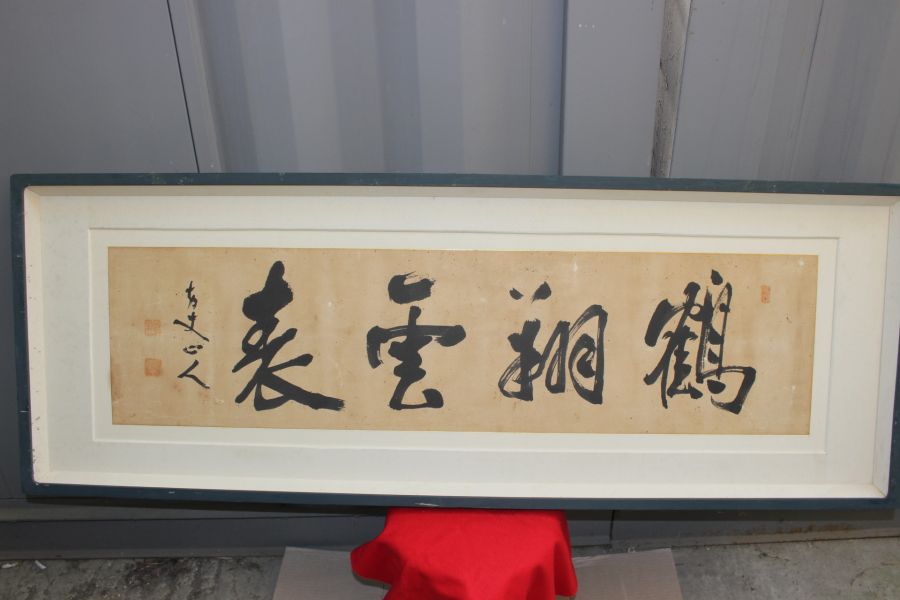 鶴翔雲表